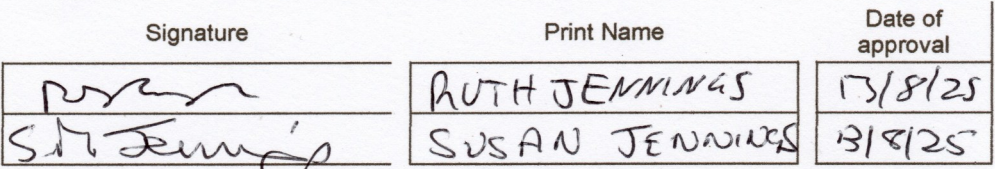 Signature Print Name Date of approval
RUTH JENNINGS 13/8/25
S.M. Jennings SUSAN JENNINGS 13/8/25